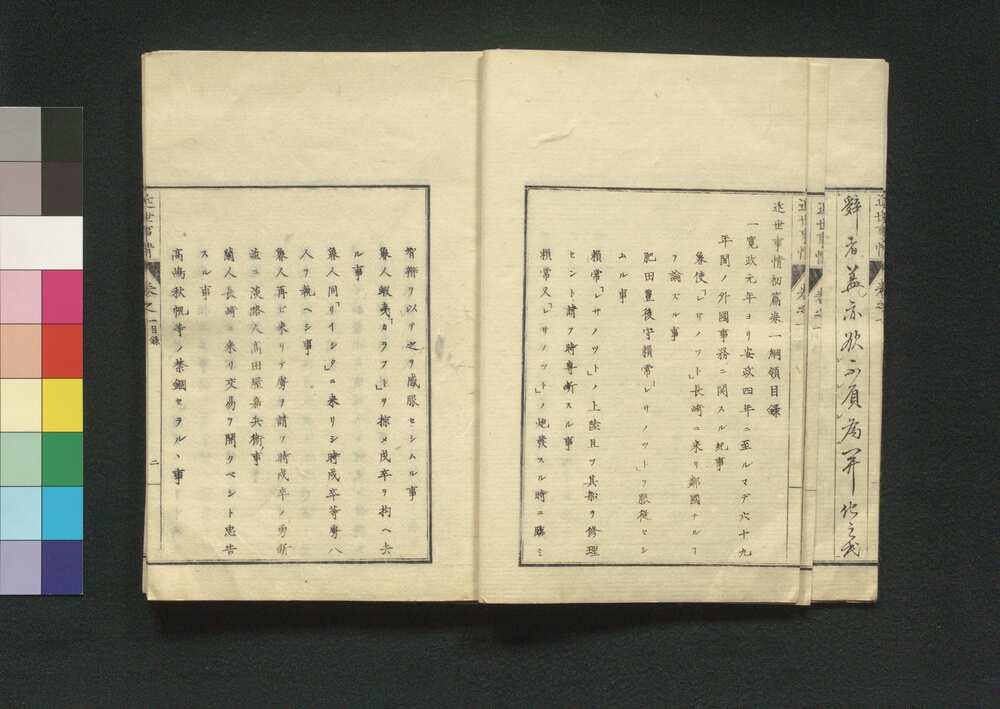 近世事情 巻之一
辭者蓋亦欲不負為开化之民
近世事情 巻之一
近世事情 巻之一
近世事情初篇巻一綱領目錄
一寛政元年ヨリ安政四年ニ至ルマデ六十九
年間ノ外國事務ニ関スル紀事
魯使「レサノット」長崎ニ来リ鄰國ナルヿ
ヲ論ズル事
肥田豊後守頼常「レサノット」ヲ聴従セシ
ムル事
頼常「レサノット」ノ上陸且ツ其船ヲ修理
セント請フ時専断スル事
頼常又「レサノット」ノ炮發スル時ニ臨ミ
智辨ヲ以テ之ヲ威服セシムル事
魯人蝦夷「カラフト」ヲ掠メ戍卒ヲ拘ヘ去
ル事
魯人同「リイシリ」ニ来リシ時戍卒等魯八
人ヲ執ヘシ事
魯人再ビ来リテ ヲ請フ時戍卒ノ勇斷
並ニ淡路人髙田屋嘉兵衛ノ事
蘭人長崎ニ来リ交易ヲ開クベシト忠告
スル事
髙嶋秋帆等ノ禁錮セラルヽ事
近世事情 巻之一目錄 二